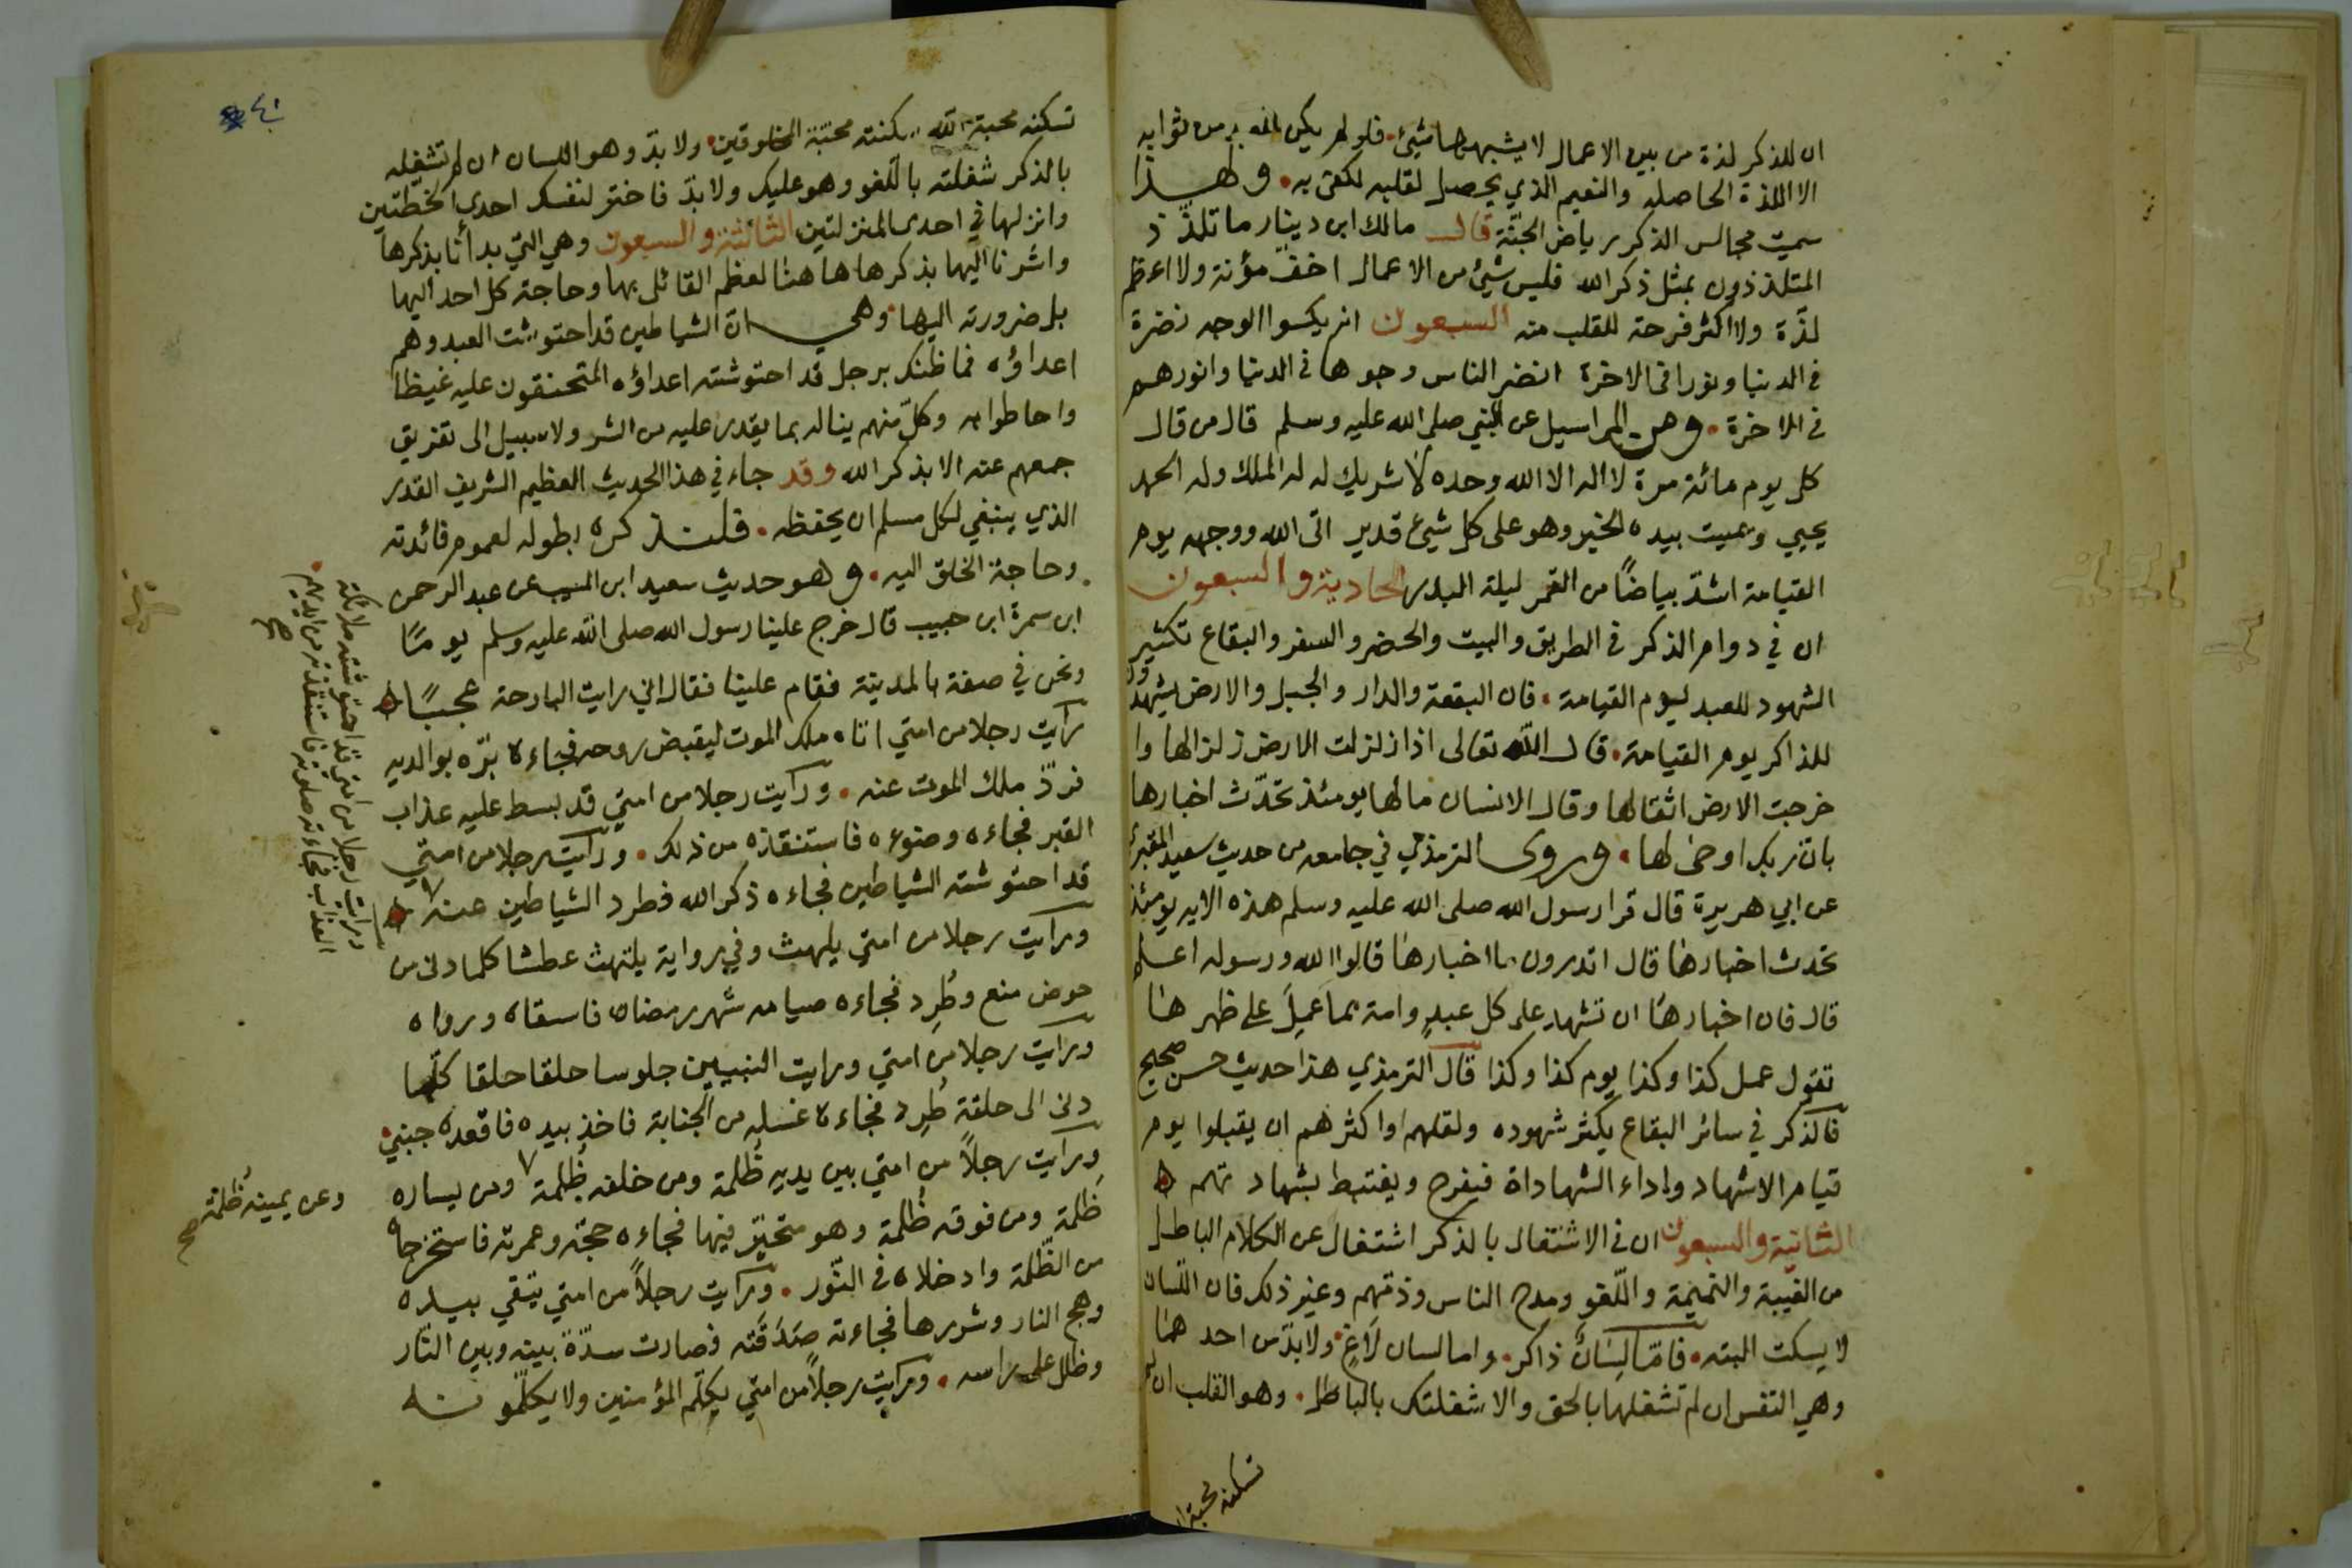 ان للذكر لذة من بين الاعمال لا يشبهها شيئ فلو لم يكن للعبد من ثوابه
الا اللذة الحاصلة والنعيم الذي يحصل لقلبه لكفى به وطهذا
سميت مجالس الذكر رياض الجنّة قال مالك ابن دينار ما تلذّذ
المتلذذون بمثل ذكر الله فليس شيئ من الاعمال اخفّ مؤنة ولا اعظم
لذّة ولا اكثر فرحة للقلب منه السبعون انه يكسوا الوجه نضرة
في الدنيا ونورا في الاخرة انضر الناس وجوها في الدنيا وانورهم
في الاخرة ومن المراسيل عن النبي صلى الله عليه وسلم قال من قال
كل يوم مائة مرة لا اله الا الله وحده لا شريك له له الملك وله الحمد
يحيي ويميت بيده الخير وهو على كل شيئ قدير اتى الله ووجهه يوم
القيامة اشدّ بياضًا من القمر ليلة البدر الحادية والسبعون
ان في دوام الذكر في الطريق والبيت والحضر والسفر والبقاع تكثير
الشهود للعبد ليوم القيامة فان البقعة والدار والجبل والارض يشهدون
للذاكر يوم القيامة قال الله تعالى اذا زلزلت الارض زلزالها وا
خرجت الارض اثقالها وقال الانسان ما لها يومئذ تحدّث اخبارها
بان ربك اوحى لها وروى الترمذي في جامعه من حديث سعيد المقبري
عن ابي هريرة قال قرا رسول الله صلى الله عليه وسلم هذه الايه يومئذ
تحدث اخبارها قال اتدرون ما اخبارها قالوا الله ورسوله اعلم
قال فان اخبارها ان تشهد على كل عبدٍ وامة بما عمِلَ على ظهرها
تقول عمل كذا وكذا يوم كذا وكذا قال الترمذي هذا حديث حسن صحيح
فالذكر في سائر البقاع يكثر شهوده ولعلهم او اكثرهم ان يقبلوا يوم
قيام الاشهاد واداء الشهاداة فيفرح ويغتبط بشهادتهم
الثانية والسبعون ان في الاشتغال بالذكر اشتغال عن الكلام الباطل
من الغيبة والنميمة واللّغو ومدح الناس وذمّهم وغير ذلك فان اللّسان
لا يسكت البته فامّا لِسَانٌ ذاكر واما لسان لَاغٍ ولا بدّ من احدهما
وهي النفس ان لم تشغلها بالحق والا شغلتك بالباطل وهو القلب ان لم
تسكنه محبة ا
٤١
تسكنه محبة الله سكنته محبّة المخلوقين ولا بدّ وهو اللسان ان لم تشغله
بالذكر شغلته باللّغو وهو عليك ولا بدّ فاختر لنفسك احدى الخطّتين
وانزلها في احدى المنزلتين الثالثة والسبعون وهي التي بدأنا بذكرها
واشرنا اليها بذكرها هاهنا لعظم القائل بها وحاجة كل احد اليها
بل ضرورته اليها وهي ان الشياطين قد احتوشت العبد وهم
اعداؤه فما ظنك برجل قد احتوشته اعداؤه المتحنقون عليه غيظا
واحاطوا به وكلّ منهم يناله بما يقدر عليه من الشر ولا سبيل الى تفريق
جمعهم عنه الا بذكر الله وقد جاء في هذا الحديث العظيم الشريف القدر
الذي ينبغي لكل مسلم ان يحفظه فلنذكره بطوله لعموم فائدته
وحاجة الخلق اليه وهو حديث سعيد ابن المسيب عن عبد الرحمن
ابن سمرة ابن حبيب قال خرج علينا رسول الله صلى الله عليه وسلم يومًا
ونحن في صفة بالمدينة فقام علينا فقال اني رايت البارحة عجبًا
رايت رجلا من امتي اتاه ملك الموت ليقبض روحه فجاءه برّه بوالديه
فردّ ملك الموت عنه ورايت رجلا من امتي قد بسط عليه عذاب
القبر فجاءه وضوءه فاستنقذه من ذلك ورايت رجلا من امتي
قد احتوشته الشياطين فجاءه ذكر الله فطرد الشياطين عنه
ورايت رجلا من امتي يلهث وفي رواية يلتهث عطشا كلما دنى من
حوض منع وطُرِد فجاءه صيامه شهر رمضان فاسقاه ورواه
ورايت رجلا من امتي ورايت النبيين جلوسا حلقا حلقا كلّما
دنى الى حلقة طُرِد فجاءه غسله من الجنابة فاخذ بيده فاقعده جبني
ورايت رجلاً من امتي بين يديه ظُلمة ومن خلفه ظُلمة ومن يساره
ظلمة ومن فوقه ظُلمة وهو متحيّر فيها فجاءه حجّه وعمرته فاستخرجاه
من الظّلمة وادخلاه في النّور ورايت رجلاً من امتي يتّقي بيده
وهج النار وشررها فجاءته صَدَقَته فصارت سدّة بينه وبين النّار
وظلل على راسه ورايت رجلاً من امتي يكلّم المؤمنين ولا يكلّمونه
ورايت رجلا من امتي قد احتوشته ملائكة
العذاب فجاءته صلوته فاستنقذته من ايديهم صح
وعن يمينه ظُلمة صح